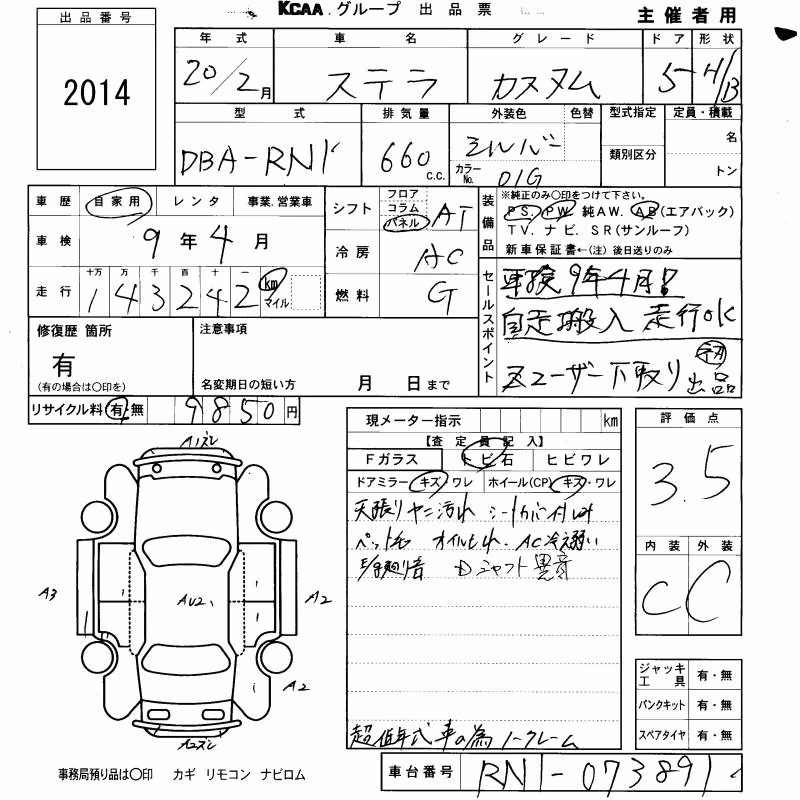 KCAA グループ 出品票 主催者用
出品番号
2014
年式 車名 グレード ドア 形状
20/2月 ステラ カスタム 5 H/B
型式 排気量 外装色 色替 型式指定 定員・積載
DBA-RN1 660 c.c. シルバー カラーNo. 01G 類別区分 名 トン
車歴 自家用 レンタ 事業.営業車
車検 9年4月
十万 万 千 百 十 一
走行 143242 km マイル
シフト フロア コラム パネル AT
冷房 AC
燃料 G
装備品 ※純正のみ○印をつけて下さい。
PS. PW. 純AW. AB(エアバック)
TV. ナビ. SR(サンルーフ)
新車保証書←(注) 後日送りのみ
セールスポイント
車検9年4月!
自走搬入 走行OK
ユーザー下取り 出品
修復歴 箇所
有
(有の場合は○印を)
注意事項
名変期日の短い方 月 日まで
リサイクル料 有・無 9850円
現メーター指示 km
【査定員記入】
Fガラス トビ石 ヒビワレ
ドアミラー キズ・ワレ ホイール(CP) キズ・ワレ
天張りヤニ汚れ シートカバー付
ペット毛 オイルもれ. AC冷え弱い
Dシャフト異音
超低年式車の為ノークレーム
評価点
3.5
内装 外装
C C
ジャッキ工具 有・無
パンクキット 有・無
スペアタイヤ 有・無
A1ズレ
A3
AU2
A2
A2
A2ズレ
1
1
1
1
1
事務局預り品は○印 カギ リモコン ナビロム
車台番号 RN1-073891